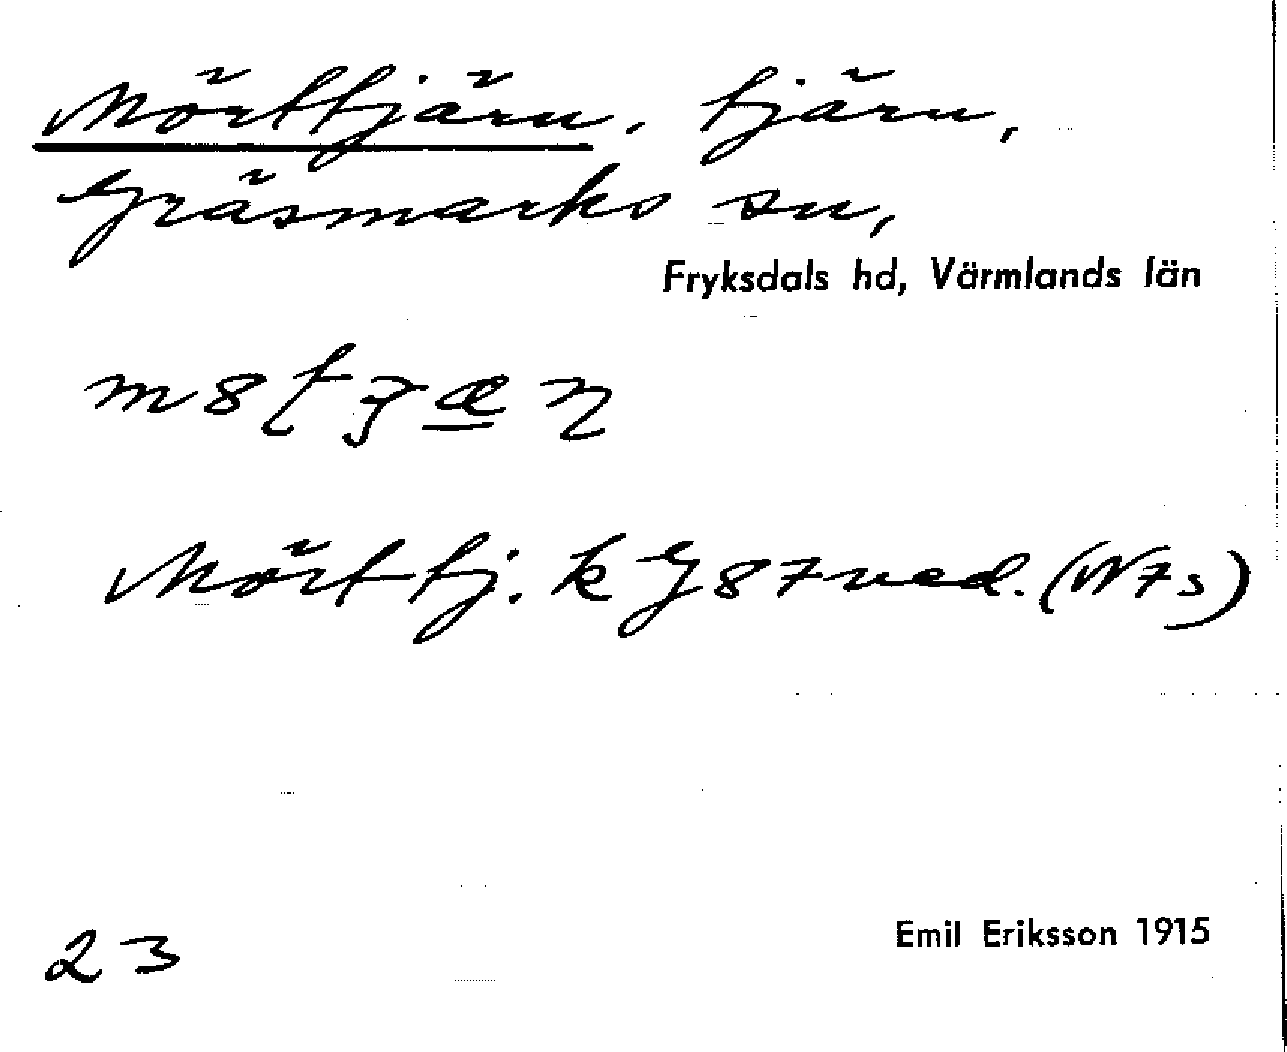 Mörttjärn, tjärn,
Gräsmarks sn,
Fryksdals hd, Värmlands län
Mörttj. k G87 ned. (N7s)
23 Emil Eriksson 1915